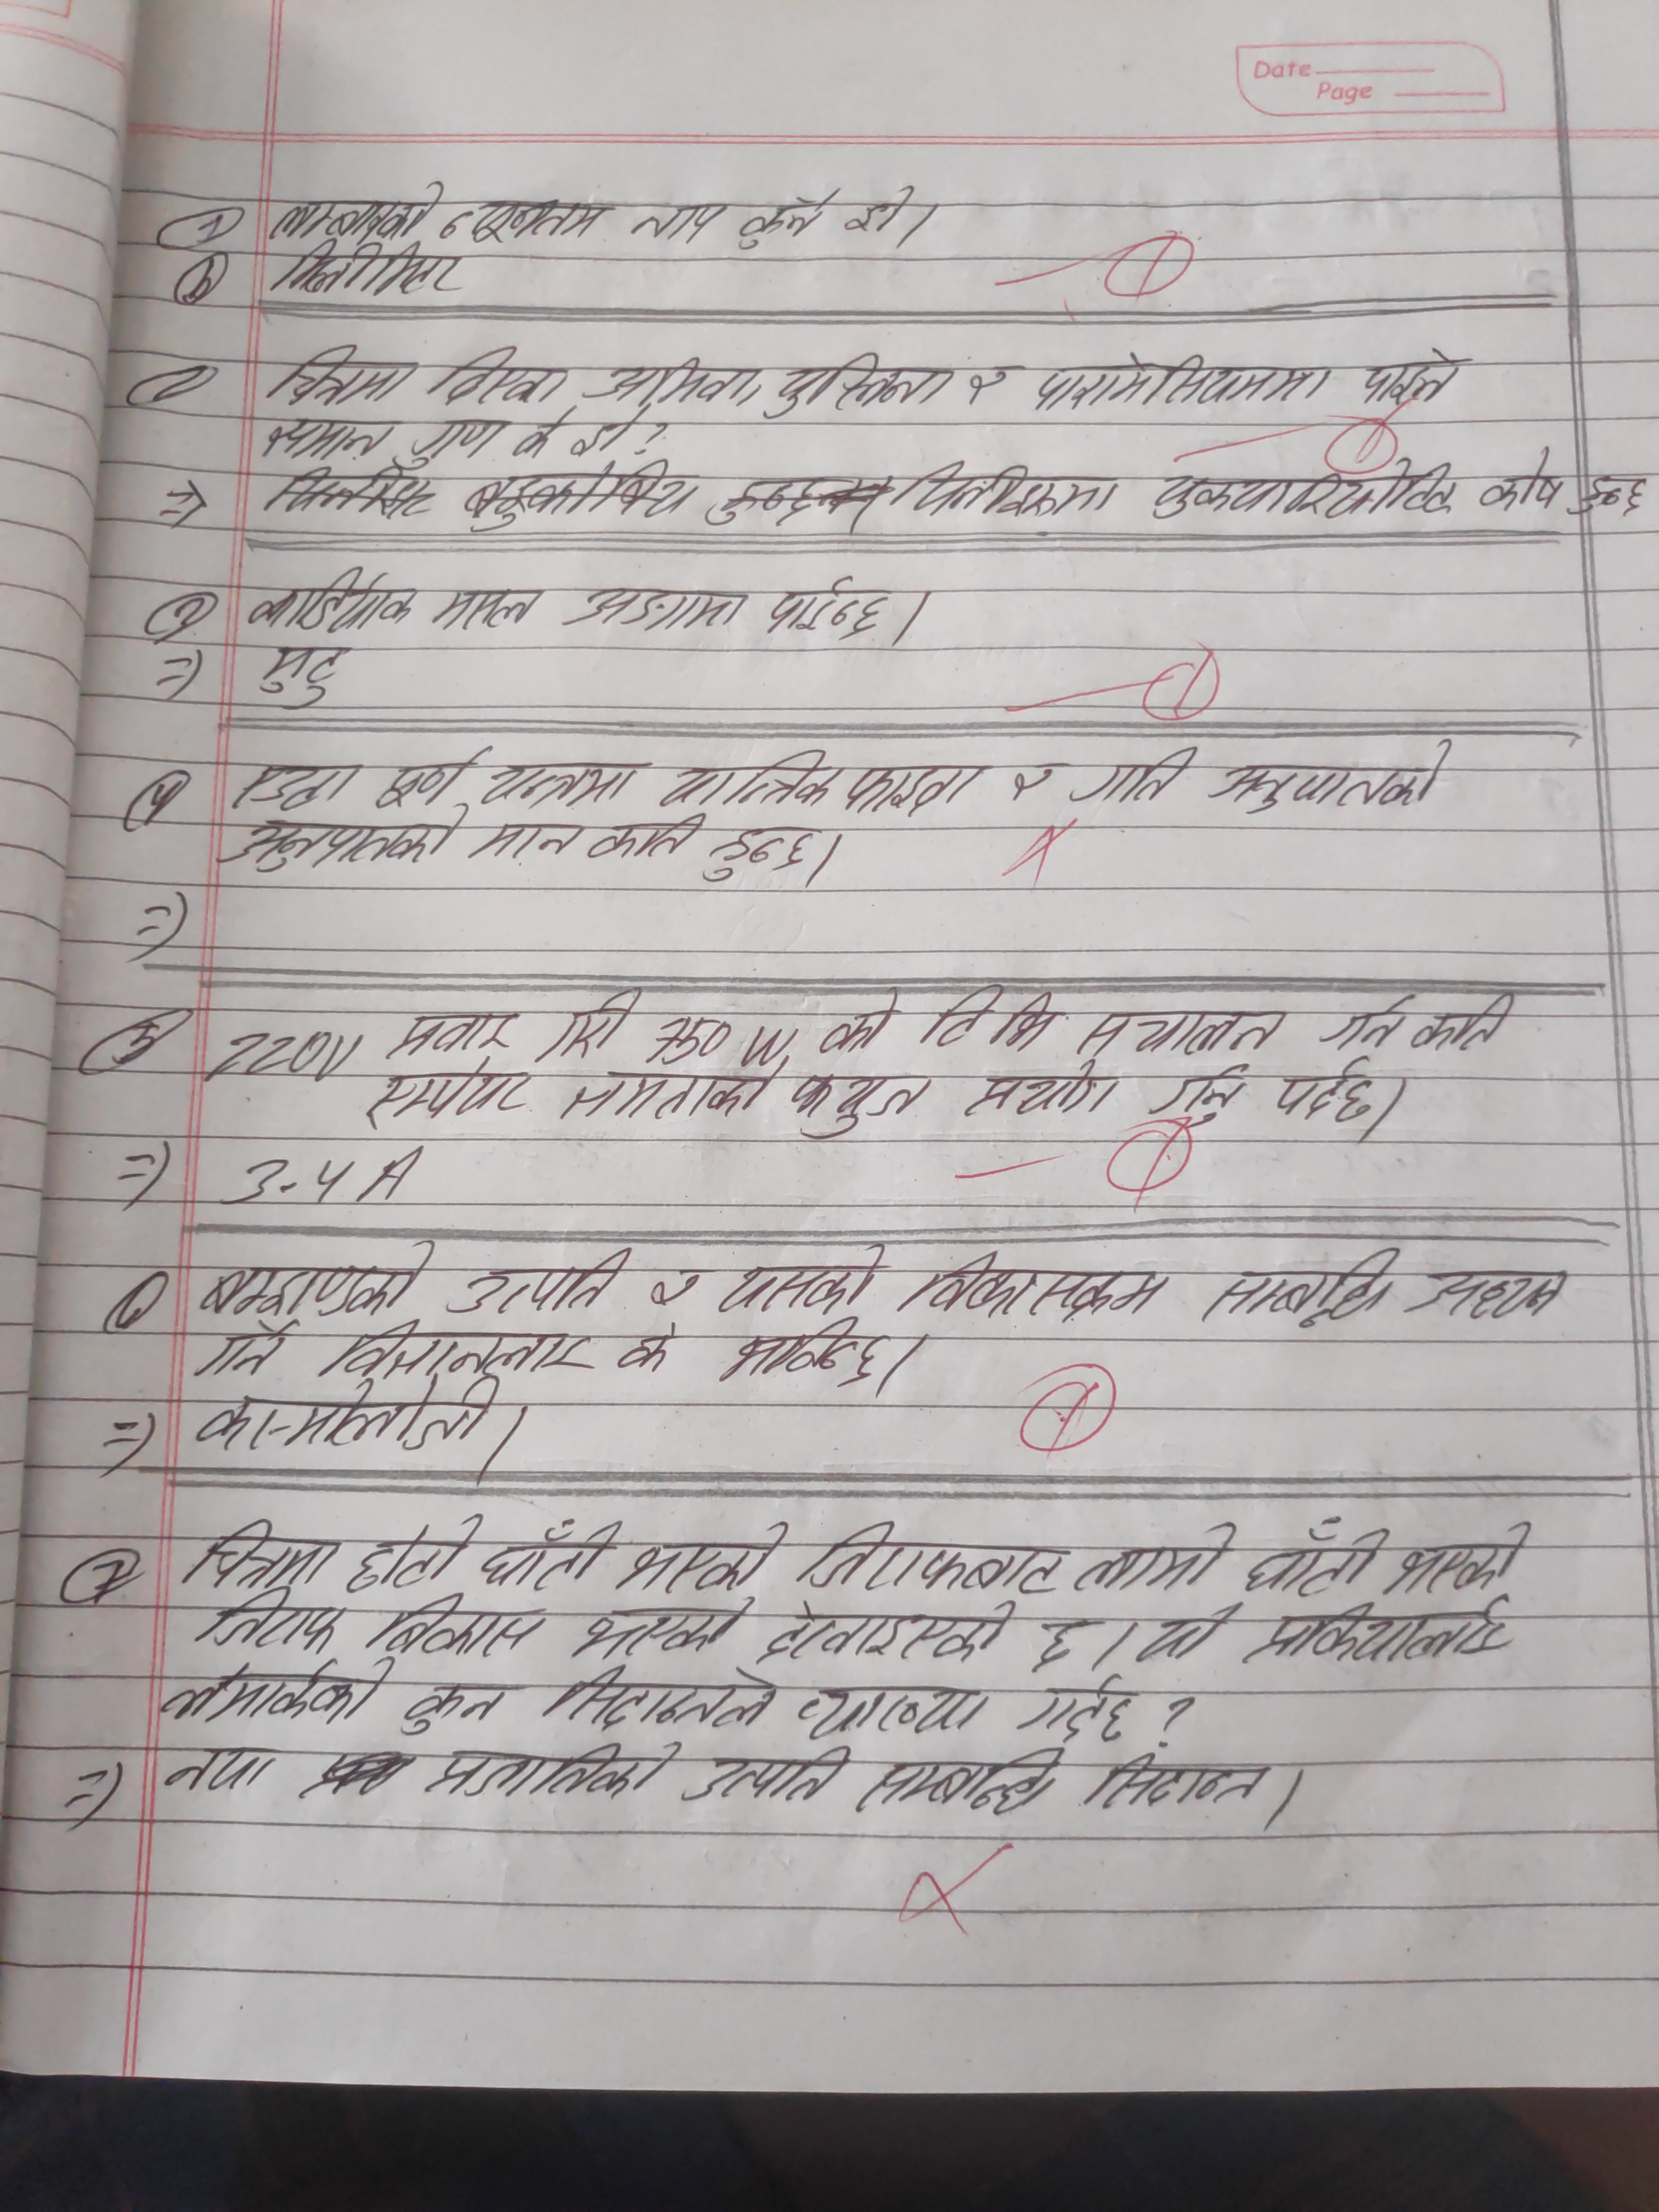 Date
Page
① लम्बाइको न्यूनतम नाप कुन हो।
ⓑ मिलीमिटर
① 
② चित्रमा दिएका अमिबा, युग्लिना र पारामेसियममा पाइने
समान गुण के हो?
①
⇒ बहुकोषिय यिनीहरूमा युकयारियोटिक कोष हुन्छ
③ कार्डियाक मसल अङ्गमा पाईन्छ।
⇒ मुटु
①
④ एउटा पूर्ण यन्त्रमा यान्त्रिक फाइदा र गति अनुपातको
अनुपातको मान कति हुन्छ।
⇒
⑤ 220V प्रवाह गरी 750 W को टि भि सचालन गर्न कति
एम्पियर क्षमताको फ्युज प्रयोग गर्नु पर्दछ।
⇒ 3.4 A
①
⑥ ब्रम्हाण्डको उत्पति र यसको विकासक्रम सम्बन्धि अध्यन
गर्ने विज्ञानलाई के भनिन्छ।
⇒ कस्मोलोजी।
①
⑦ चित्रमा छोटो घाँटी भएको जिराफबाट लामो घाँटी भएको
जिराफ विकास भएको देखाइएको छ। यो प्रकियालाई
लेमार्कको कुन सिदान्तले व्याख्या गर्दछ?
⇒ नया प्रजातिको उत्पति सम्बन्धि सिदान्त।